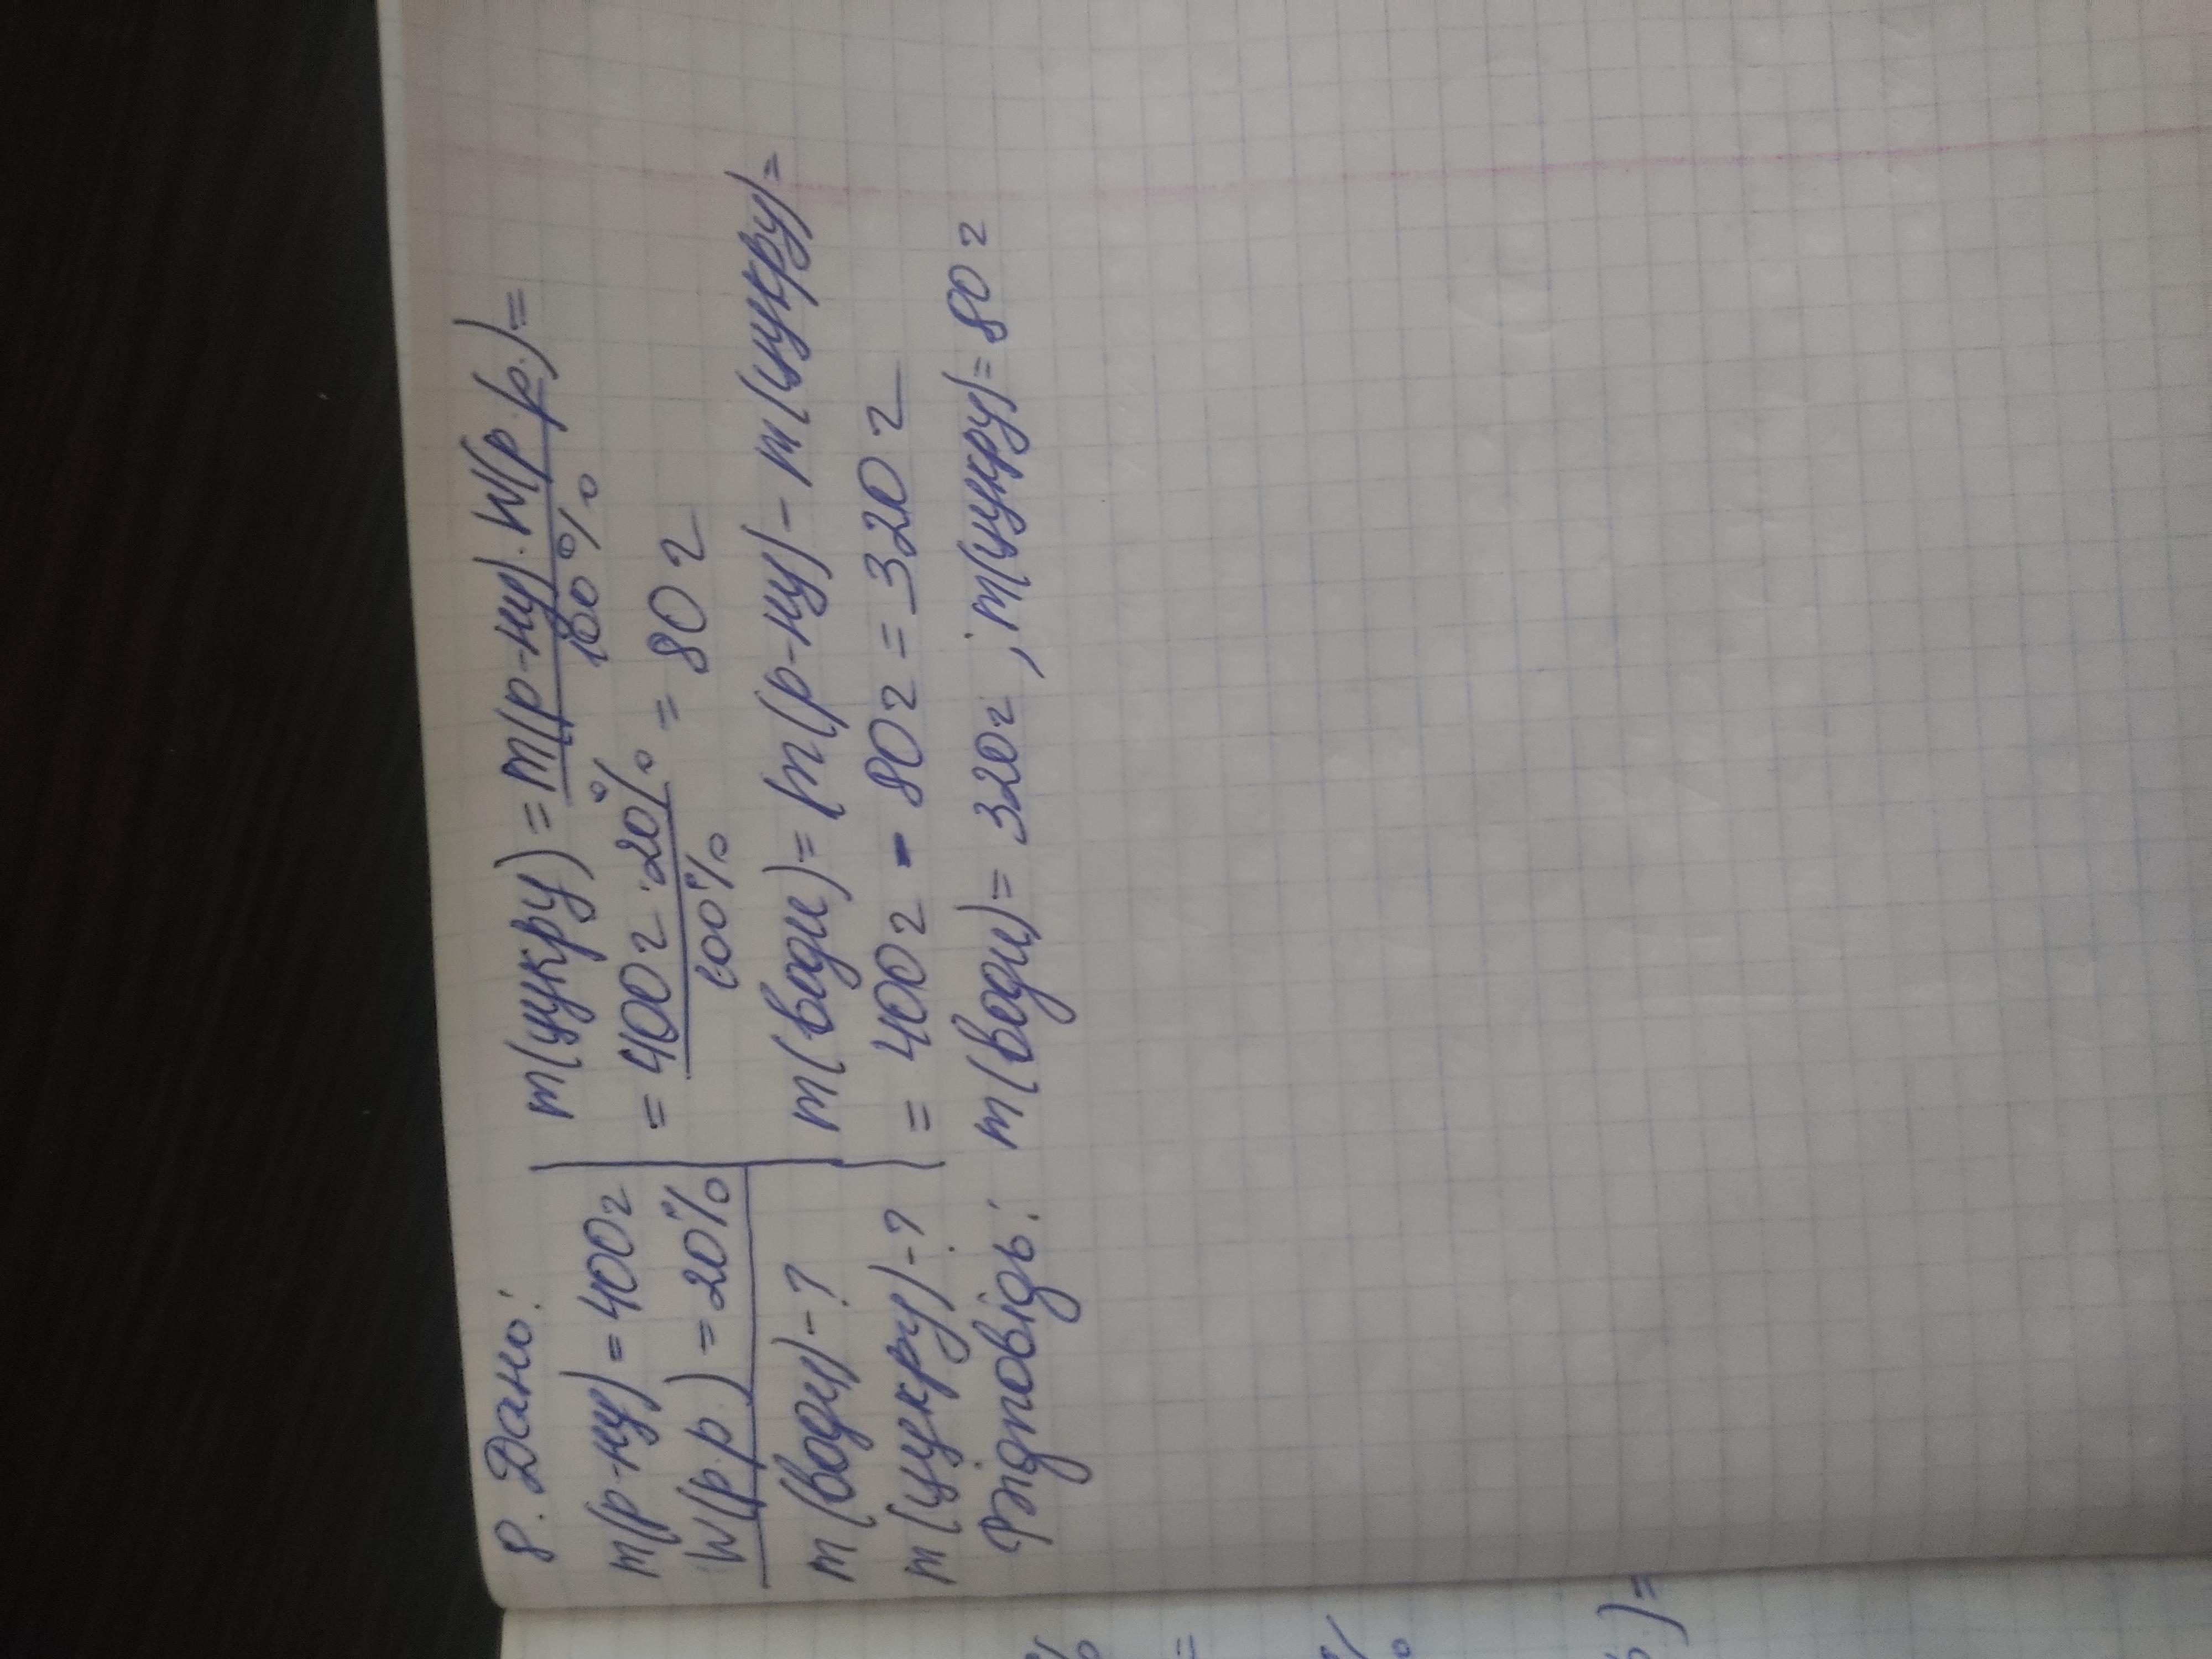 8. Дано:
m(р-ну) = 400г
W(р.р.) = 20%
m(води) - ?
m(цукру) - ?
m(цукру) = m(р-ну) · W(р.р.) =
100%
= 400г · 20% = 80 г
100%
m(води) = m(р-ну) - m(цукру) =
= 400г - 80г = 320 г
Відповідь: m(води) = 320г, m(цукру) = 80 г
%
=
%
) =